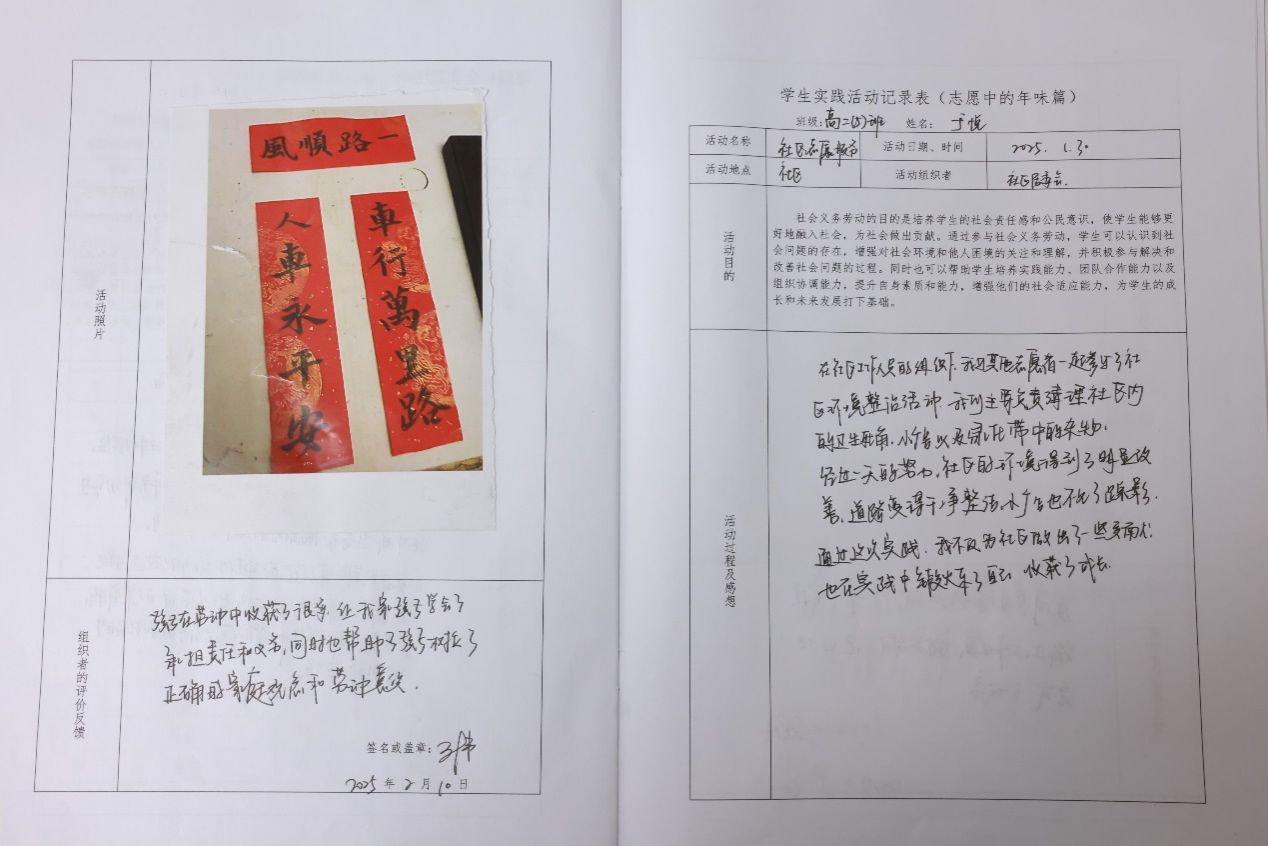 活动照片
一路顺風
車行萬里路
人車永平安
组织者的评价反馈
孩子在劳动中收获了很多,让我家孩子学会了
承担责任和义务,同时也帮助了孩子树立了
正确的家庭观念和劳动意识.
签名或盖章:
2025年2月10日
学生实践活动记录表(志愿中的年味篇)
班级:高二(5)班 姓名:于悦
活动名称 社区志愿服务 活动日期、时间 2025. 1.30
活动地点 社区 活动组织者 社区居委会.
活动目的
社会义务劳动的目的是培养学生的社会责任感和公民意识,使学生能够更
好地融入社会,为社会做出贡献。通过参与社会义务劳动,学生可以认识到社
会问题的存在,增强对社会环境和他人困境的关注和理解,并积极参与解决和
改善社会问题的过程。同时也可以帮助学生培养实践能力、团队合作能力以及
组织协调能力,提升自身素质和能力,增强他们的社会适应能力,为学生的成
长和未来发展打下基础。
活动过程及感想
在社区工作人员的组织下,我与其他志愿者一起参与了社
区环境整治活动 我们主要负责清理社区内
的卫生死角、小广告以及绿化带中的杂物.
经过一天的努力,社区的环境得到了明显改
善,道路变得干净整洁,小广告也不见了踪影.
通过这次实践,我不仅为社区做出了一些贡献,
也在实践中锻炼了自己 收获了成长.